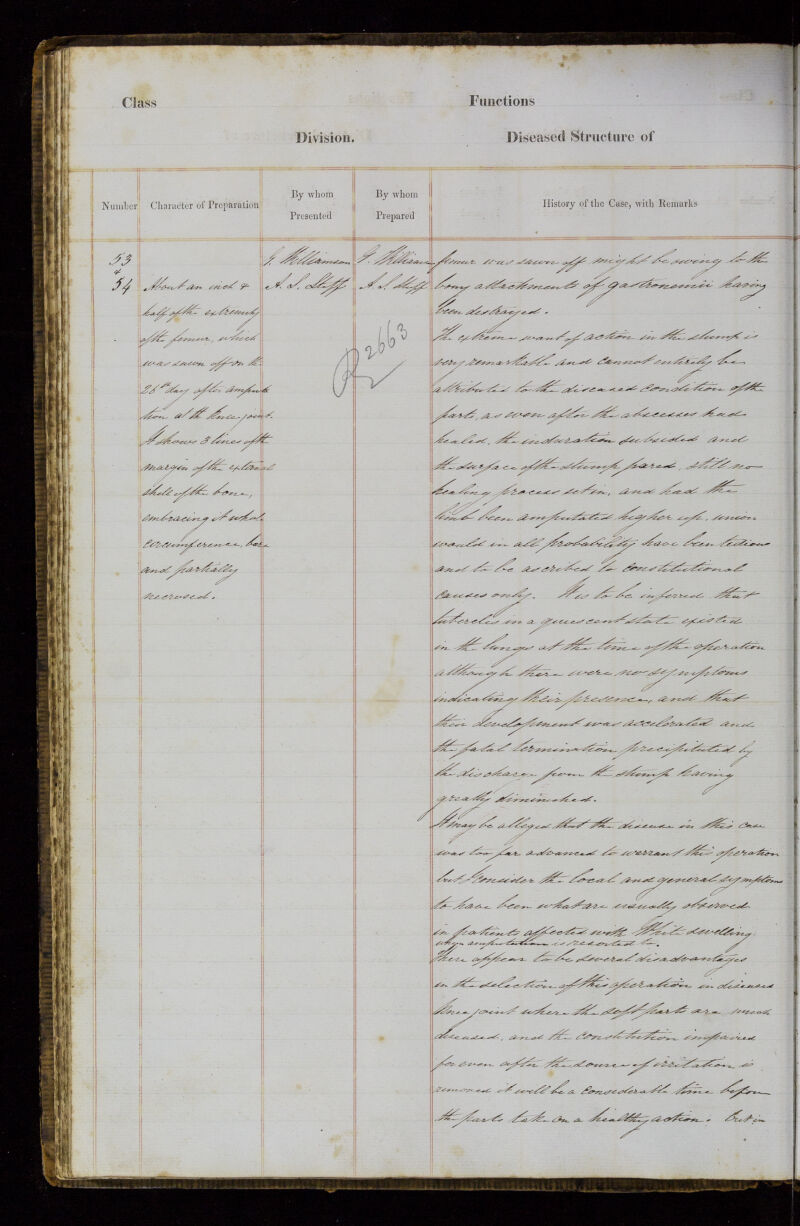 Class
Functions
Division.
Diseased Structure of
Number
Character of Preparation
By whom
Presented
By whom
Prepared
History of the Case, with Remarks
53
&
54
About an inch &
half of the extremity
of the femur, which
was sawn off on the
26th day after amputa
tion at the knee joint.
It shows 3 lines of the
margin of the external
shell of the bone,
embracing it whole
circumference, bare
and partially
necrosed.
G. Williamson
A. S. Stiff
G. Williamson
A. S. Stiff
R 2663
femur was sawn off might be owing to the
bony attachments of gastronemii having
been destroyed.
The extreme want of action in the stump is
very remarkable and cannot entirely be
attributed to the diseased condition of the
parts, as soon after the abscesses had
healed, the induration subsided and
the surface of the stump pared, still no
healing process set in, and had the
limb been amputated higher up, union
would in all probability have been tedious
and to be ascribed to constitutional
causes only. It is to be inferred that
tubercles in a quiescent state existed
in the lungs at the time of the operation
although there were no symptoms
indicating their presence, and that
their development was accelerated and
the fatal termination precipitated by
the discharge from the stump having
greatly diminished.
It may be alleged that the disease in this case
was too far advanced to warrant this operation
but I consider the local and general symptoms
to have been what are usually observed
in patients affected with White Swelling
when amputation is resorted to.
There appear to be several disadvantages
in the selection of this operation in diseased
knee joint where the soft parts are much
diseased, and the constitution impaired
for even after the source of irritation is
removed it will be a considerable time before
the parts take on a healthy action. But in